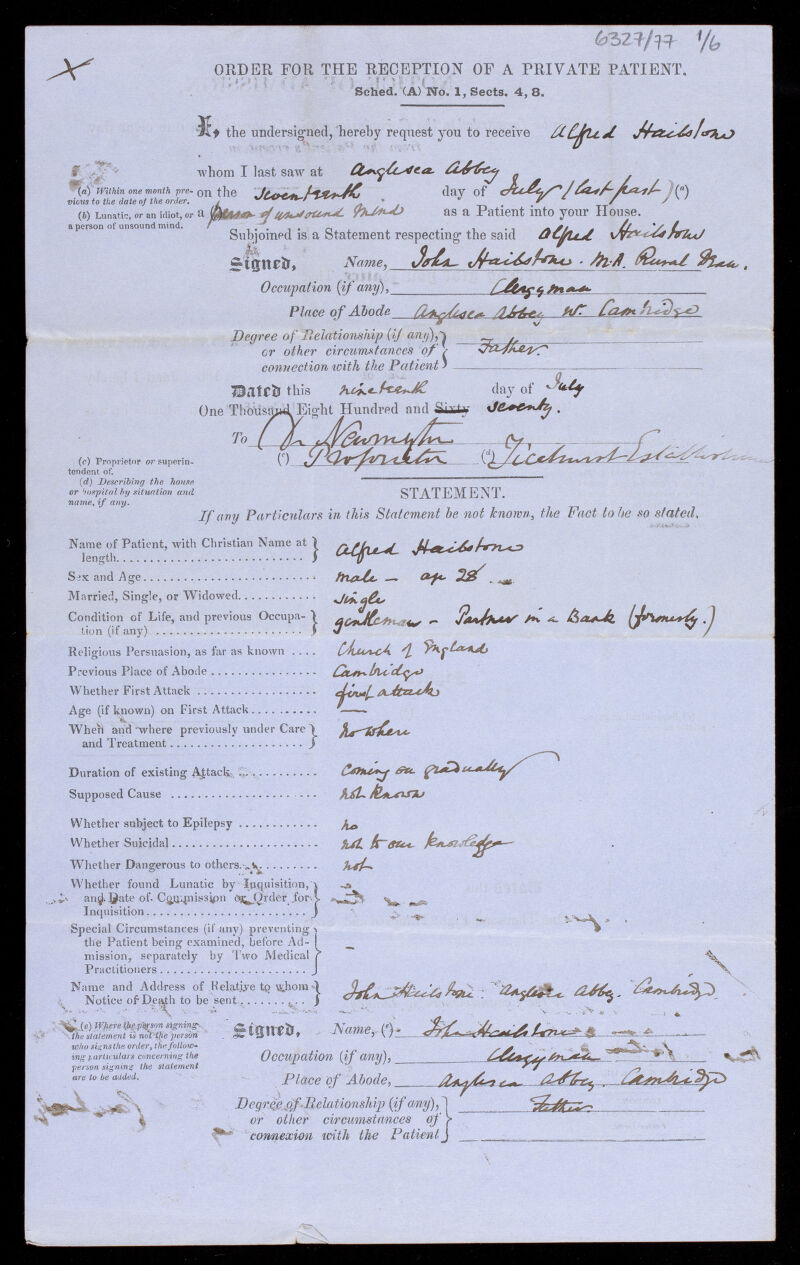 6327/77 1/6
ORDER FOR THE RECEPTION OF A PRIVATE PATIENT.
Sched. (A) No. 1, Sects. 4, 8.
I, the undersigned, hereby request you to receive Alfred Hailstone
whom I last saw at Anglesea Abbey
(a) Within one month previous to the date of the order.
on the seventeenth day of July (last past) (a)
(b) Lunatic, or an idiot, or a person of unsound mind.
a person of unsound mind as a Patient into your House.
Subjoined is a Statement respecting the said Alfred Hailstone
Signed, Name, John Hailstone. M.A. Rural Dean.
Occupation (if any), Clergyman
Place of Abode Anglesea Abbey nr. Cambridge
Degree of Relationship (if any),
or other circumstances of
connection with the Patient
Father.
Dated this nineteenth day of July
One Thousand Eight Hundred and Sixty seventy.
To Dr Newington
(c) Proprietor (d) Ticehurst Establishment
(c) Proprietor or superintendent of.
(d) Describing the house or hospital by situation and name, if any.
STATEMENT.
If any Particulars in this Statement be not known, the Fact to be so stated.
Name of Patient, with Christian Name at length Alfred Hailstone
Sex and Age male – age 28
Married, Single, or Widowed single
Condition of Life, and previous Occupation (if any) gentleman – Partner in a Bank (formerly.)
Religious Persuasion, as far as known Church of England
Previous Place of Abode Cambridge
Whether First Attack first attack
Age (if known) on First Attack —
When and where previously under Care and Treatment no where
Duration of existing Attack coming on gradually
Supposed Cause not known
Whether subject to Epilepsy no
Whether Suicidal not to our knowledge
Whether Dangerous to others not
Whether found Lunatic by Inquisition, and Date of Commission or Order for Inquisition
Special Circumstances (if any) preventing the Patient being examined, before Admission, separately by Two Medical Practitioners –
Name and Address of Relative to whom Notice of Death to be sent John Hailstone. Anglesea Abbey. Cambridge.
(e) Where the person signing the statement is not the person who signs the order, the following particulars concerning the person signing the statement are to be added.
Signed, Name, (e) John Hailstone
Occupation (if any), Clergyman
Place of Abode, Anglesea Abbey. Cambridge
Degree of Relationship (if any),
or other circumstances of
connexion with the Patient
Father.